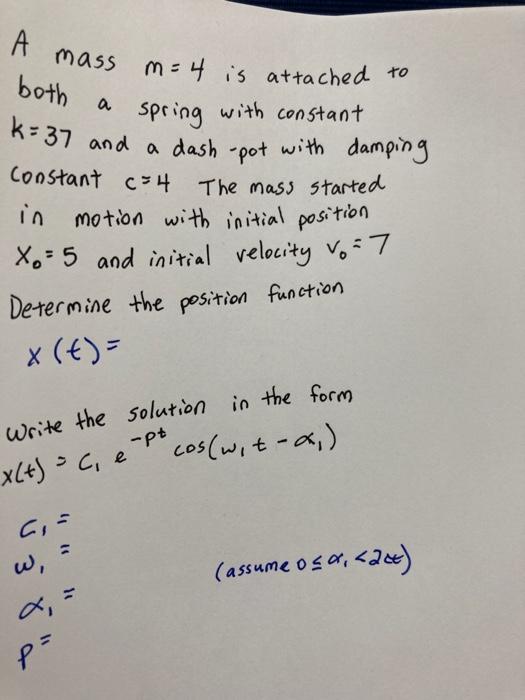 A mass m = 4 is attached to
both a spring with constant
k = 37 and a dash-pot with damping
constant c = 4 The mass started
in motion with initial position
x₀ = 5 and initial velocity v₀ = 7
Determine the position function
x(t) =
Write the solution in the form
x(t) = C₁ e^-pt cos(ω₁t - α₁)
C₁ =
ω₁ =
(assume 0 ≤ α₁ < 2π)
α₁ =
p =